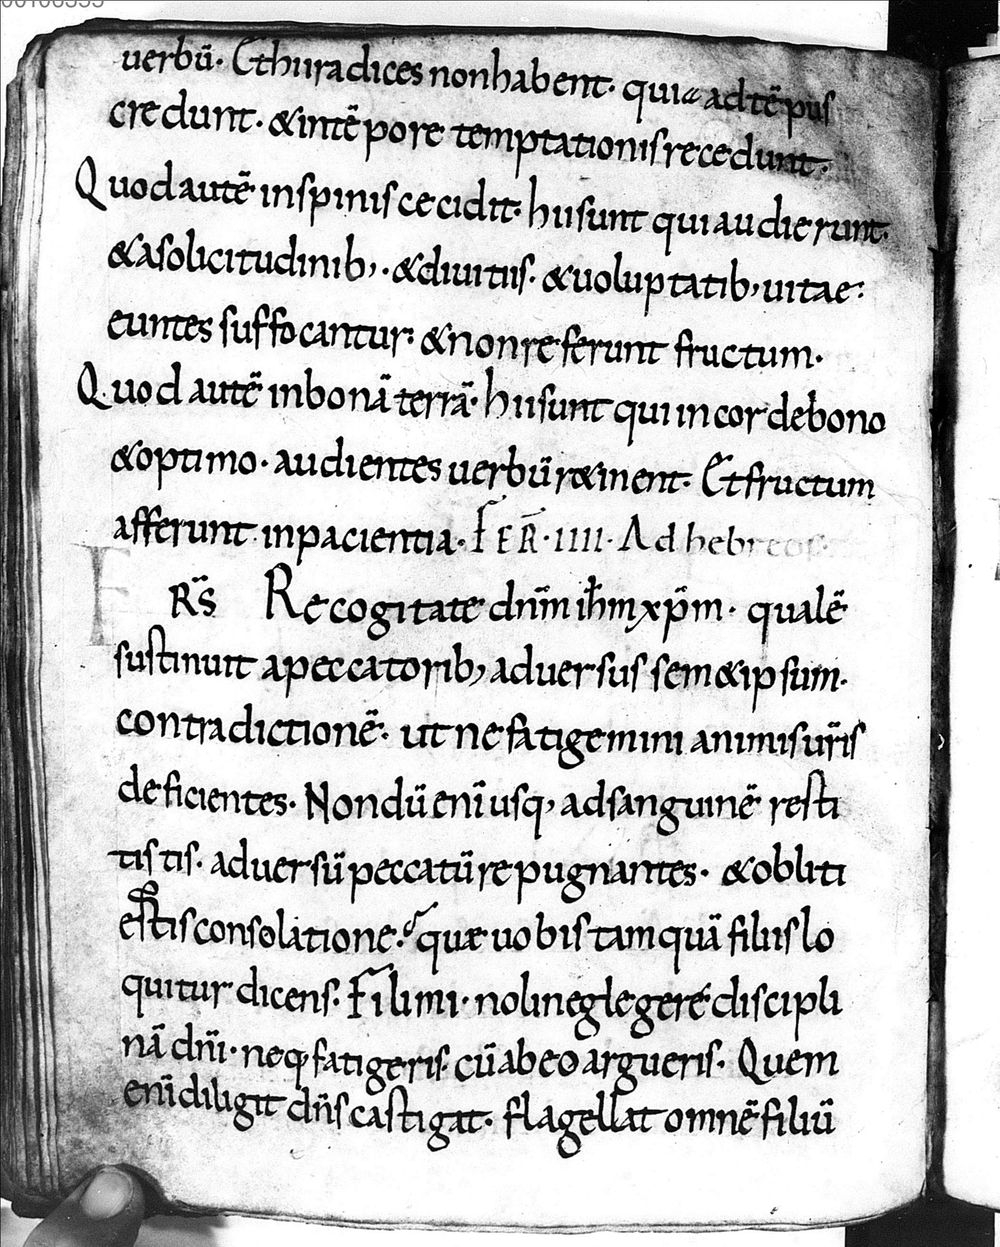 uerbū· Et hii radices non habent· quia ad tēpus
credunt· & in tēpore temptationis recedunt·
Quod autē in spinis cecidit· hii sunt qui audierunt·
& a solicitudinib;· & diuitiis· & uoluptatib; uitae·
euntes suffocantur· & non referunt fructum·
Quod autē in bonā terrā· hii sunt qui in corde bono
& optimo· audientes uerbū r&inent· Et fructum
afferunt in pacientia· FER̄· IIII· Ad hebreos·
FRS̄ Recogitate dn̄m ih̄m xp̄m· qualē
sustinuit a peccatorib; aduersus sem&ipsum·
contradictionē· ut ne fatigemini animis ur̄is
deficientes· Nondū enī usq; ad sanguinē resti
tistis· aduersū peccatū repugnantes· & obliti
estis consolatione· quae uobis tamquā filiis lo
quitur dicens· Fili mi· noli neglegere discipli
nā dn̄i· neq; fatigeris cū ab eo argueris· Quem
enī diligit dn̄s castigat· flagellat omnē filiū